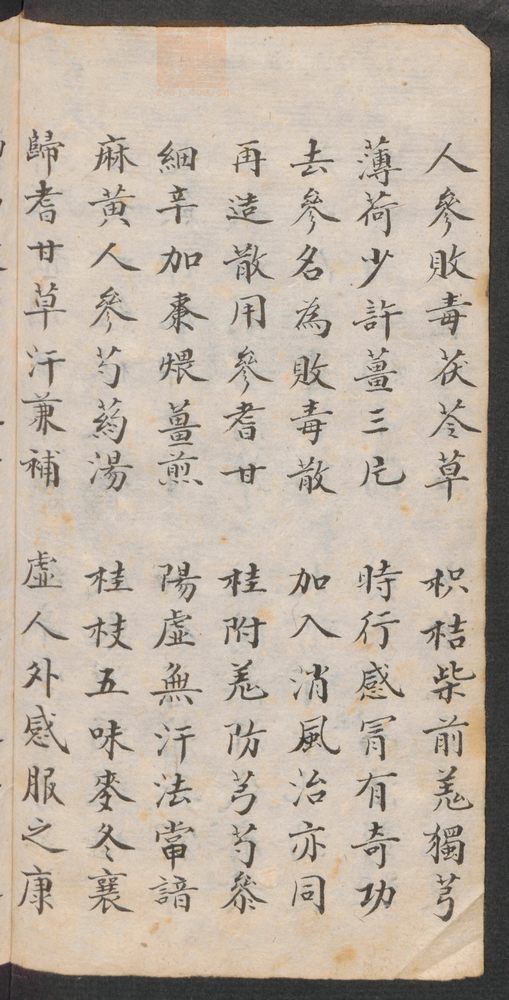 人參敗毒茯苓草　枳桔柴前羗獨芎
薄荷少許薑三片　時行感冐有奇功
去參名為敗毒散　加入消風治亦同
再造散用參耆甘　桂附羗防芎芍參
細辛加棗煨薑煎　陽虛無汗法當諳
麻黄人參芍葯湯　桂枝五味麥冬襄
歸耆甘草汗兼補　虛人外感服之康